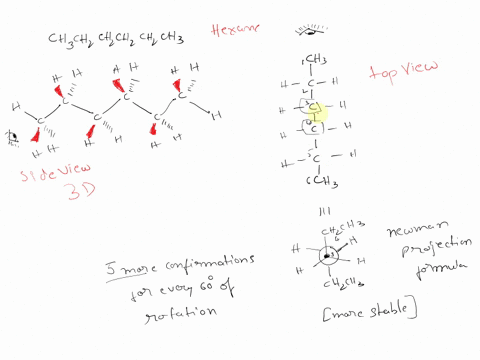 CH3CH2 CH2CH2 CH2 CH3 Hexane
H H H H H H
C C C C C C
H H
H H H H H H
Side View
3D
Top View
1CH3
H - C - H
2
H - 3C - H
H - 4C - H
H - 5C - H
6CH3
CH2CH3
H H
H H
CH2CH3
newman
projection
formula
[more stable]
5 more confirmations
for every 60° of
rotation